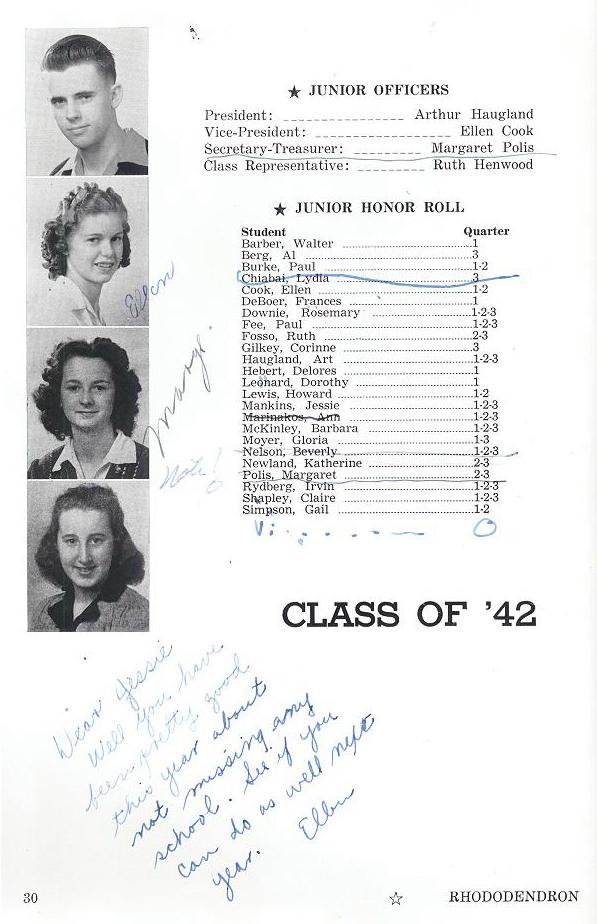 ★ JUNIOR OFFICERS
President: ________________ Arthur Haugland
Vice-President: __________________ Ellen Cook
Secretary-Treasurer: _________ Margaret Polis
Class Representative: _________ Ruth Henwood
★ JUNIOR HONOR ROLL
Student Quarter
Barber, Walter ........ 1
Berg, Al ........ 3
Burke, Paul ........ 1-2
Chiabai, Lydia ........ 3
Cook, Ellen ........ 1-2
DeBoer, Frances ........ 1
Downie, Rosemary ........ 1-2-3
Fee, Paul ........ 1-2-3
Fosso, Ruth ........ 2-3
Gilkey, Corinne ........ 3
Haugland, Art ........ 1-2-3
Hebert, Delores ........ 1
Leonard, Dorothy ........ 1
Lewis, Howard ........ 1-2
Mankins, Jessie ........ 1-2-3
Marinakos, Ann ........ 1-2-3
McKinley, Barbara ........ 1-2-3
Moyer, Gloria ........ 1-3
Nelson, Beverly ........ 1-2-3
Newland, Katherine ........ 2-3
Polis, Margaret ........ 2-3
Rydberg, Irvin ........ 1-2-3
Shapley, Claire ........ 1-2-3
Simpson, Gail ........ 1-2
Vi. . . . . . O
Ellen
Marge.
Note!
CLASS OF '42
Dear Jessie
Well you have
been pretty good
this year about
not missing any
school. See if you
can do as well next
year. Ellen
30 ☆ RHODODENDRON